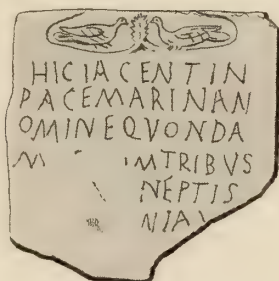 HICIACENTIN
PACEMARINAN
OMINEQVONDA
M IMTRIBVS
NEPTIS
NIA